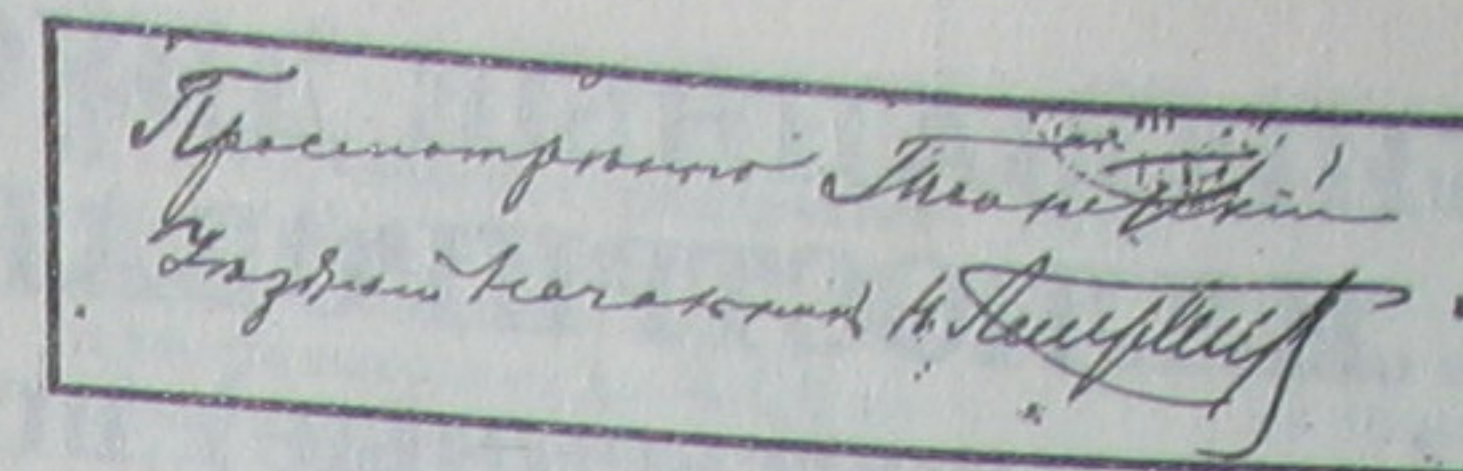 Просмотрѣно Тіонетскій
Уѣздный Начальникъ